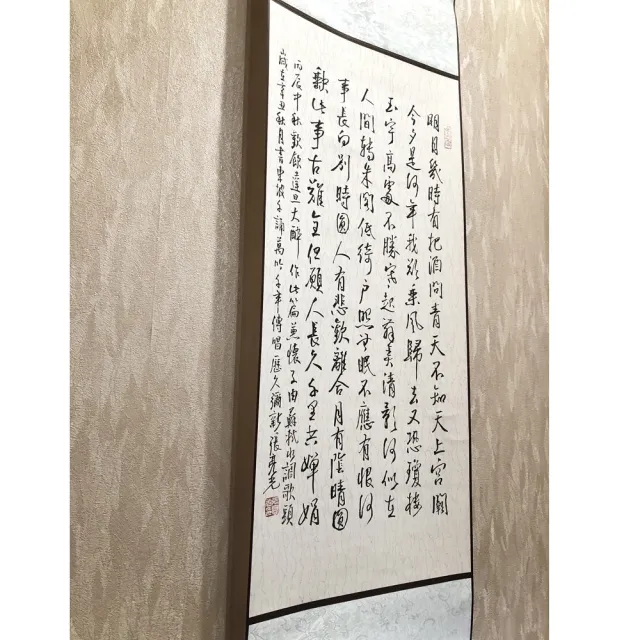 明月幾時有把酒問青天不知天上宮闕
今夕是何年我欲乘風歸去又恐瓊樓
玉宇高處不勝寒起舞弄清影何似在
人間轉朱閣低綺戶照無眠不應有恨何
事長向別時圓人有悲歡離合月有陰晴圓
缺此事古難全但願人長久千里共嬋娟
丙辰中秋歡飲達旦大醉作此篇兼懷子由蘇軾水調歌頭
歲在辛丑秋月書東坡千誦萬吟千年傳唱歷久彌新張